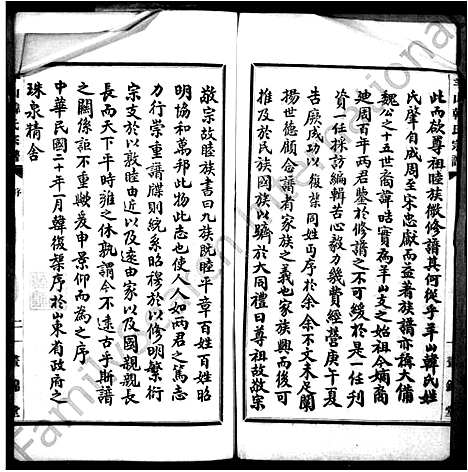 此而欲尊祖睦族微修譜其何從乎羊山韓氏姓
氏肇自成周至宋忠獻而益著族譜亦稱大備
魏公之十五世裔諱實為羊山支之始祖今嫡裔
建周百年兩君鑒於修譜之不可緩於是一任刊
資一任採訪編輯苦心毅力幾費經營庚午夏
吉厥成功以復榘同姓丐序於余余不文未足闡
揚世德顧念諸君睦家族之義也家族興而後可
推及於民族國族以躋於大同禮曰尊祖故敬宗
敬宗故睦族書曰九族既睦平章百姓百姓昭
明協和萬邦此物此志也使人人如兩君之篤志
力行崇重譜牒則統系昭穆於以修明繁衍
宗支於以敦睦由近以及遠由家以及國親親長
長而天下平時雍之休孰謂今不遠古乎斯譜
之關係詎不重歟爰申景仰而為之序
中華民國二十年一月韓復榘序於山東省政府之
珍泉精舍
羊山韓氏宗譜
序
二
晝錦堂
FamilySearch International